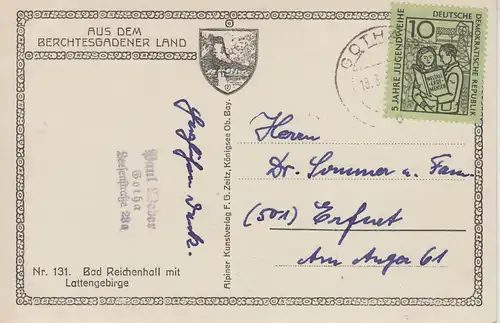 AUS DEM
BERCHTESGADENER LAND
GOTHA
10
DEUTSCHE
DEMOKRATISCHE REPUBLIK
5 JAHRE JUGENDWEIHE
Herzlichen Dank.
Paul Weber
Gotha
28a
Alpiner Kunstverlag F. G. Zeitz, Königsee Ob. Bay.
Herrn
Dr. Sommer u. Fam.
(501) Erfurt
Am Anger 61
Nr. 131. Bad Reichenhall mit
Lattengebirge